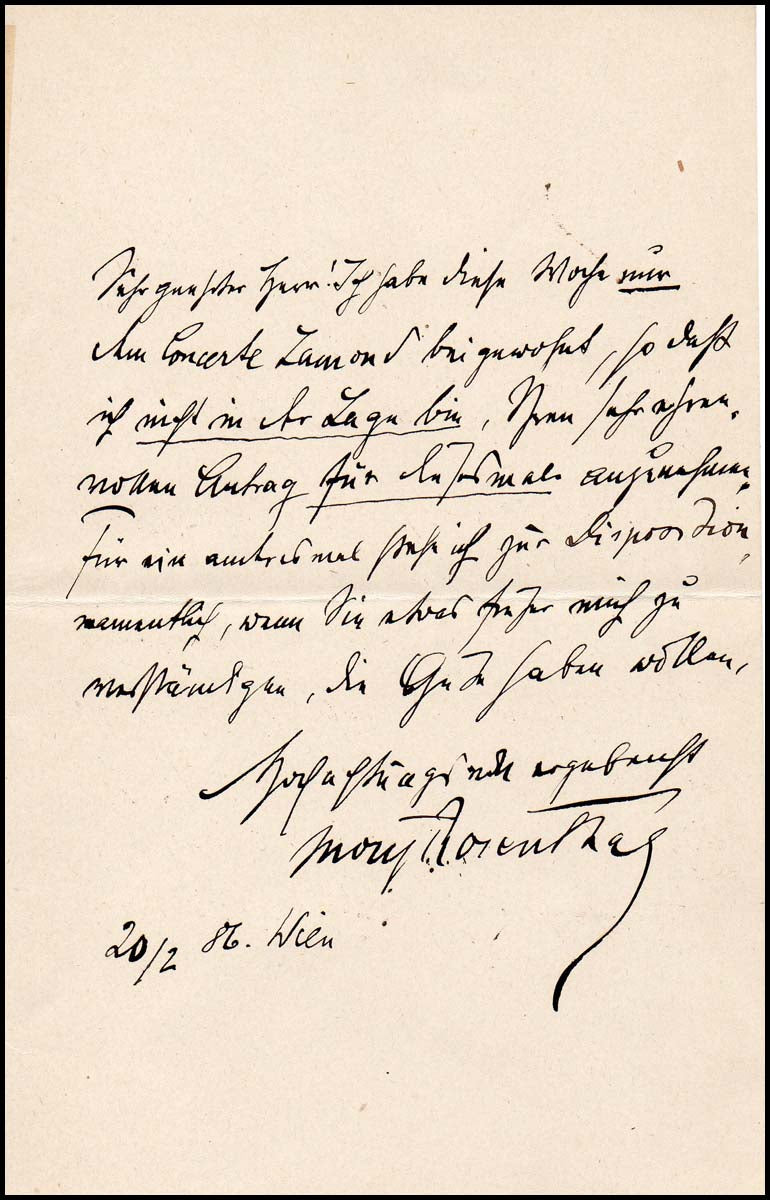 Sehr geehrter Herr! Ich habe diese Woche nur
dem Concerte Lamond beigewohnt, so daß
ich nicht in der Lage bin, Ihren sehr ehren-
vollen Antrag für diesesmal anzunehmen.
Für ein andresmal stehe ich zur Disposition,
namentlich, wenn Sie etwas früher mich zu
verständigen, die Güte haben wollen,
Hochachtungsvoll ergebenst
Moriz Rosenthal
20/2 86. Wien